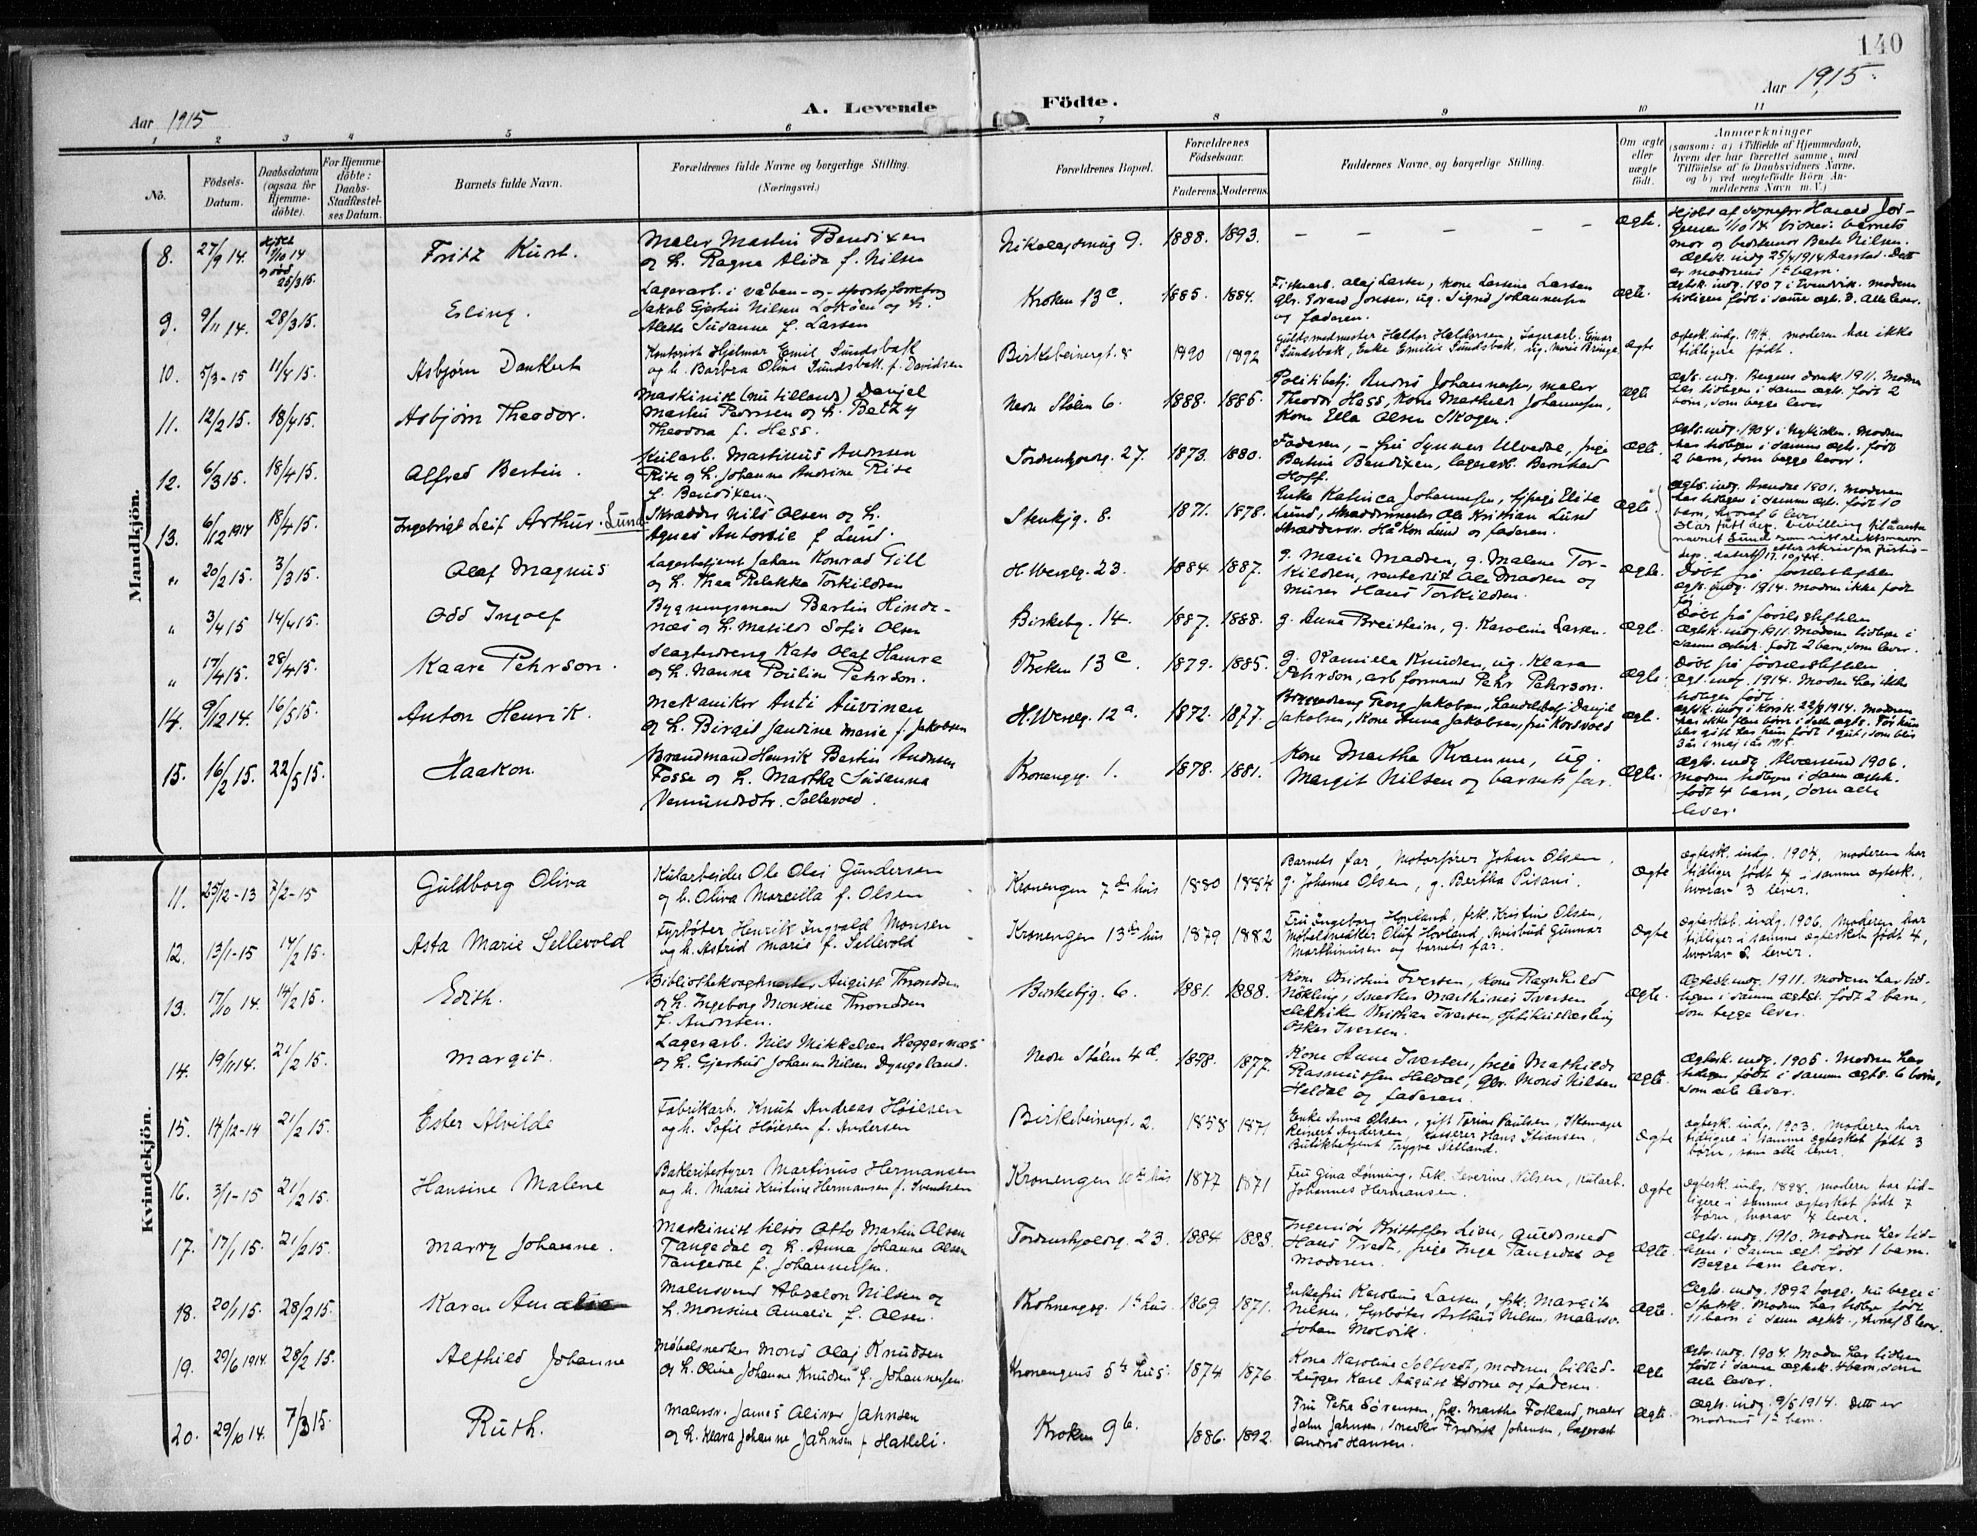 140
Aar 1915
A. Levende Födte.
Aar 1915.
1 2 3 4 5 6 7 8 9 10 11
No.
Födsels-Datum.
Daabsdatum (ogsaa for Hjemme-döbte).
For Hjemme-döbte: Daabs-Stadfæstel-ses Datum.
Barnets fulde Navn.
Forældrenes fulde Navne og borgerlige Stilling.
(Næringsvei.)
Forældrenes Bopæl.
Forældrenes Födselsaar.
Faderens. Moderens.
Faddernes Navne, og borgerlige Stilling.
Om ægte eller uægte födt.
Anmærkninger
(saasom: a) i Tilfælde af Hjemmedaab, hvem der har forrettet samme, med Tilföielse af to Daabsvidners Navne, og b) ved uægtefödte Börn Anmelderens Navn m. V.)
Mandkjön.
8. 27/9 14. 1/10 14 25/3 15. Fritz Kurt. Maler Martin Bendixen og h. Ragna Alida f. Nilsen Nikolaysmug 9. 1888. 1893. — — — — — Ægte.
mor og bedstemor Berte Nilsen. er moderens 1ste barn.
9. 9/11 14. 28/3 15. Esling. Lagerarb. i våben- og sportsforretng Jakob Gjertin Nilsen og h. Alette Susanne f. Larsen Kroken 13c. 1885. 1884. Olaf Larsen, kone Larsine Larsen og faderen. ægte.
10. 5/3-15 11/4 15. Asbjørn Dankert Kontorist Hjelmar Emil Sundsbak og h. Barbra Oline Sundsbak f. Davidsen Birkebeinergt. 8 1890 1892 Guldsmedmester Heldor Heldorsen, Lagerarb. Einar Sundsbak, Enke Emilie Sundsbak, ug. Marie Bringe ægte ægtesk. indg. 1914. moderen har ikke tidligere født.
11. 12/2 15. 18/4 15. Asbjørn Theodor. Maskinist (nu tillands) Danjel Martin Pedersen og h. Bethy Theodora f. Hess. Nedre Stølen 6. 1888. 1885. Politibetj. Andris Johannessen, maler Theodor Hess, Kone Mathilde Johannesen, Kone Ella Olsen Skogen. ægte ægts. indg. Bergens domk. 1911. Modren har tidligen i samme ægts. født 2 barn, som begge lever
12. 6/3 15. 18/4 15. Alfred Bertin. Kularb. Martinus Andersen Rise og h. Johanne Andrine Rise f. Bendixen. Tordenskjoldg. 27. 1873. 1880. Faderen, – fru Synneve Ulvedal, Bertine Bendixen, lagerarb. Bernhard Hoff. ægte. ægts. indg. 1904 i Nykirken. Modren har tidligen i samme ægt. født 2 barn, som begge lever.
13. 6/12 1914 18/4 15. Ingebrigt Leif Arthur. Lund. Skrædder Nils Olsen og h. Agnes Antonie f. Lund. Steinkjg. 8. 1871. 1878. Enke Katinca Johannesen, Elise Lund, skræddermester Ole Kristian Lund Håkon Lund og faderen. ægte. ægts. indg. Arendal 1901. Moderen har tidligen i samme ægt. født 10 barn, hvoraf 6 lever.
" 20/2 15. 3/3 15. Olaf Magnus Lagerbetjent Johan Konrad Gill og h. Thea Rebekka Torkildsen H. Wergelg. 23. 1884. 1887. g. Marie Madsen, g. Malene Torkildsen, Ole Madsen og murer Hans Torkildsen. ægte. Døbt på fødselsstiftelsen ægt. indg. 1914. Modren ikke født før
" 3/4 15 14/4 15. Odd Ingolf Bygningsmand Bertin Hindenæs og h. Matilde Sofie Olsen Birkebg. 14. 1887. 1888. g. Anna Breistein, g. Karoline Larsen. ægte. Døbt på fødselsstiftelsen Ægtsk. indg. 1911. Moderen tidligere i samme ægtsk. født 2 barn, som lever.
" 17/4 15. 28/4 15. Kaare Pehrson. Slagterdreng Kato Olaf Hamre og h. Nanna Pouline Pehrson. Kroken 13c. 1879. 1885. g. Kamilla Knudsen, ug. Klara Pehrson, arb. formand Pehr Pehrson. ægte. Døbt på fødselsstiftelsen Ægt. indg. 1914. Modren har ikke tidligen født.
14. 9/12 14. 16/5 15. Anton Henrik. Mekaniker Anti Auvinen og h. Birgit Jandine Marie f. Jakobsen H. Wergelg. 12a. 1872. 1877. Georg Jakobsen, Handelsbetj. Danjel Jakobsen, Kone Anna Jakobsen, fru Korsvold ægte.
15. 16/2 15. 22/5 15. Haakon. Brandmand Henrik Bertin Andersen Fosse og h. Martha Susanna Vemundsdtr. Sellevold. Kronengg. 1. 1878. 1881. Kone Martha Kvamme, ug. Margit Nilsen og barnets far. ægte. ægts. indg. Alversund 1906. Modren tidligen i samme ægtsk. født 4 barn, som alle lever.
Kvindekjön.
11. 25/12-13 7/2-15 Guldborg Oliva Kularbeider Ole Olai Gundersen og h. Oliva Marcella f. Olsen Kronengen 7de hus 1880 1884 Barnets far, Motorfører Johan Olsen, g. Johanne Olsen, g. Bertha Pisani. ægte ægtesk. indg. 1904, moderen har tidligere født 4 i samme ægtesk., hvorav 3 lever.
12. 13/1-15 14/2 15. Asta Marie Sellevold Fyrbøter Henrik Ingvald Monsen og h. Astrid Marie f. Sellevold Kronengen 13de hus 1879 1882 Fru Ingeborg Hovland, frk. Kristine Olsen, Møbelsnekker Oluf Hovland, Avisbud Gunnar Marthinusen og barnets far. ægte ægteskab indg. 1906, moderen har tidliger i samme ægteskab født 4, hvorav 2 lever.
13. 17/10 14. 14/2 15. Edith. August Throndsen og h. Ingeborg Monsine Throndsen f. Andersen. Birkebg. 6. 1881. 1888. Kone Kristine Iversen, kone Ragnhild Nøkling, snedker Marthinus Iversen, elektriker Kristian Iversen, optikerlærling Oskar Iversen. ægte. ægtesk. indg. 1911. Modren har tidligen i samme ægtsk. født 2 barn, som begge lever.
14. 19/11 14. 21/2 15. Margit. Lagerarb. Nils Mikkelsen Heggernæs og h. Gjertrud Johanne Nilsen Dyngeland. Nedre Stølen 4d. 1878. 1877. Kone Anne Iversen, pige Mathilde Rasmussen Heldal, gbr. Mons Nilsen Heldal og faderen. ægte. ægtesk. indg. 1905. Modren har tidligen født i samme ægts. 6 barn, som alle lever.
15. 14/12-14 21/2 15. Ester Alvilde Fabrikarb. Knut Andreas Høiesen og h. Sofie Høiesen f. Andersen Birkebeinergt. 2. 1858 1871 Enke Anna Olsen, gift Torine Paulsen, Skomager Reinert Andersen, Kasserer Hans Stiansen, Butikbetjent Trygve Selland. ægte ægtesk. indg. 1903. moderen har tidligere i samme ægteskab født 3 børn, som alle lever.
16. 3/1-15 21/2 15. Hansine Malene Bakeribestyrer Martinus Hermansen og h. Marie Kristine Hermansen f. Svendsen Kronengen 10de hus 1877 1871 Fru Gina Lønning, Frk. Severine Nilsen, Kularb. Johannes Hermansen. ægte ægtesk. indg. 1898, moderen har tidligere i samme ægteskab født 7 børn, hvorav 4 lever.
17. 17/1 15. 21/2 15. Marry Johanne. Maskinist tilsjøs Otto Martin Olsen Tangedal og h. Anna Johanne Olsen Tangedal f. Johannessen. Tordenskjoldg. 23. 1884 1888. Ingeniør Kristoffer Lien, Guldsmed Hans Tvedt, pige Inga Tangedal og moderen. ægte. ægts. indg. 1910. Modren har tidligen i samme ægt. født 1 barn. Begge barn lever.
18. 20/1 15. 28/2 15. Karen Amalie Malersvend Absalon Nilsen og h. Monsine Amalie f. Olsen. Krohnengg. 1ste hus. 1869. 1871. Enkefru Karoline Larsen, frk. Margit Nilsen, fyrbøter Arthur Nilsen, malersv. Johan Molvik. ægte. ægts. indg. 1892 borgl. nu begge i Statsk. Modren har tidlige født 11 barn i samme ægtsk., hvoraf 8 lever.
19. 29/6 1914. 28/2 15. Alfhild Johanne Møbelsnedker Mons Olaj Knudsen og h. Oline Johanne Knudsen f. Johannessen. Kronengens 5te hus. 1874 1876. Kone Karoline Solstedt, moderen, billedhugger Karl August Horne og faderen. ægte ægts. indg. 1904. Modren har tidligen født i samme ægtesk. 4 barn, som alle lever.
20. 29/10 14. 7/3 15. Ruth. Malersv. James Oliver Jahnsen og h. Klara Johanne Jahnsen f. Hatleli. Kroken 9b. 1886. 1892. Fru Petra Sørensen, frk. Martha Fotland, maler John Jahnsen, smedker Fredrik Johansen, lagerarb. Andris Hansen. ægte. ægts. indg. 9/5 1914. Dette er moderens 1ste barn.